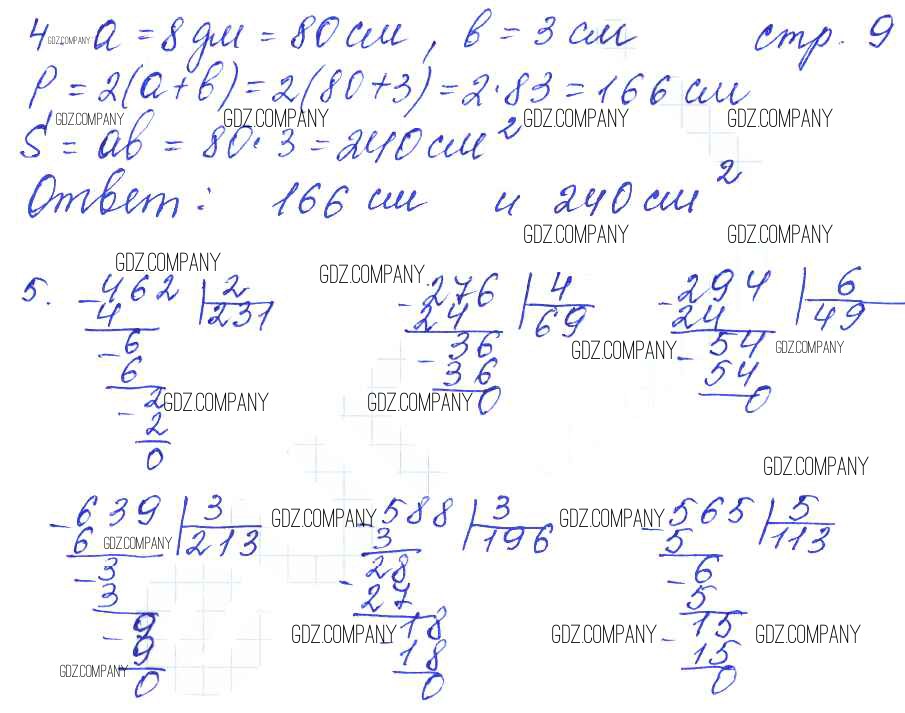 4. a = 8 дм = 80 см, в = 3 см стр. 9
GDZ.COMPANY
P = 2(a+b) = 2(80+3) = 2·83 = 166 см
GDZ.COMPANY GDZ.COMPANY GDZ.COMPANY GDZ.COMPANY
S = ab = 80·3 = 240 см²
Ответ: 166 см и 240 см²
GDZ.COMPANY GDZ.COMPANY
GDZ.COMPANY GDZ.COMPANY
5. -462 2 -276 4 -294 6
4 231 24 69 24 49
-6 -36 GDZ.COMPANY -54 GDZ.COMPANY
6 36 54
-2 GDZ.COMPANY GDZ.COMPANY 0 0
2
0
GDZ.COMPANY
-639 3 GDZ.COMPANY -588 3 GDZ.COMPANY -565 5
6 GDZ.COMPANY 213 3 196 5 113
-3 -28 -6
3 27 5
-9 GDZ.COMPANY -18 GDZ.COMPANY -15 GDZ.COMPANY
9 18 15
GDZ.COMPANY 0 0 0